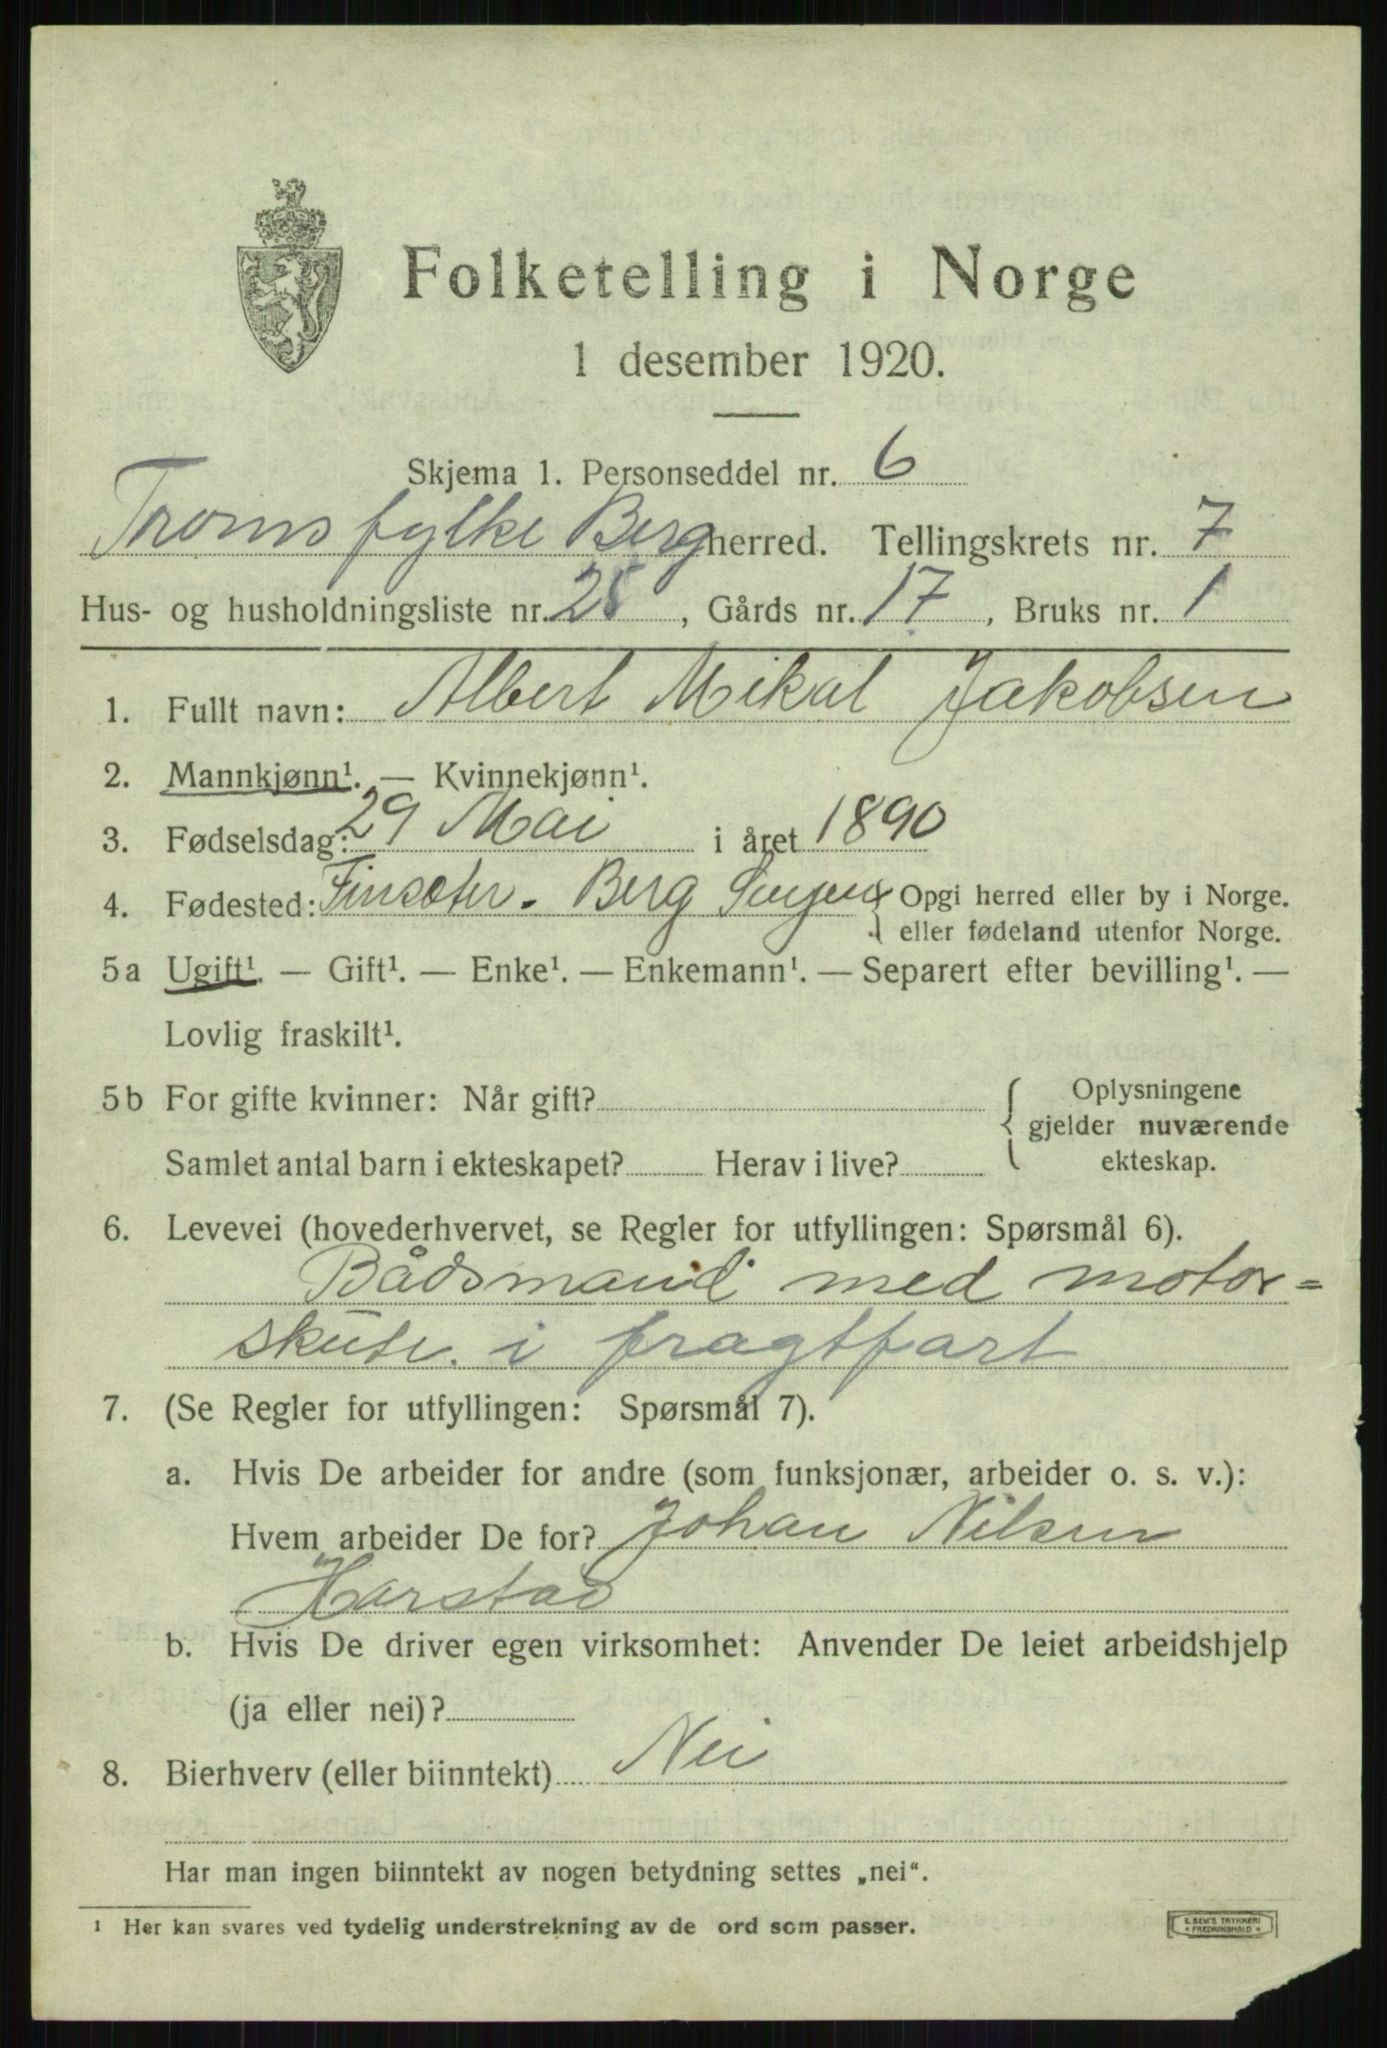 Folketelling i Norge
1 desember 1920.
Skjema 1. Personseddel nr. 6
Troms fylke Berg herred. Tellingskrets nr. 7
Hus- og husholdningsliste nr. 28, Gårds nr. 17, Bruks nr. 1
1. Fullt navn: Albert Mikal Jakobsen
2. Mannkjønn¹. — Kvinnekjønn¹.
3. Fødselsdag: 29 Mai i året 1890
4. Fødested: Finsæter. Berg Senjen { Opgi herred eller by i Norge.
eller fødeland utenfor Norge.
5a Ugift¹. — Gift¹. — Enke¹. — Enkemann¹. — Separert efter bevilling¹. —
Lovlig fraskilt¹.
5b For gifte kvinner: Når gift? { Oplysningene
gjelder nuværende
Samlet antal barn i ekteskapet? Herav i live? ekteskap.
6. Levevei (hovederhvervet, se Regler for utfyllingen: Spørsmål 6).
Bådsmand med motor=
skute. i fragtfart
7. (Se Regler for utfyllingen: Spørsmål 7).
a. Hvis De arbeider for andre (som funksjonær, arbeider o. s. v.):
Hvem arbeider De for? Johan Nilsen
Harstad
b. Hvis De driver egen virksomhet: Anvender De leiet arbeidshjelp
(ja eller nei)?
8. Bierhverv (eller biinntekt) Nei
Har man ingen biinntekt av nogen betydning settes „nei“.
¹ Her kan svares ved tydelig understrekning av de ord som passer.
E. SEM'S TRYKKERI
* FREDRIKSHALD *